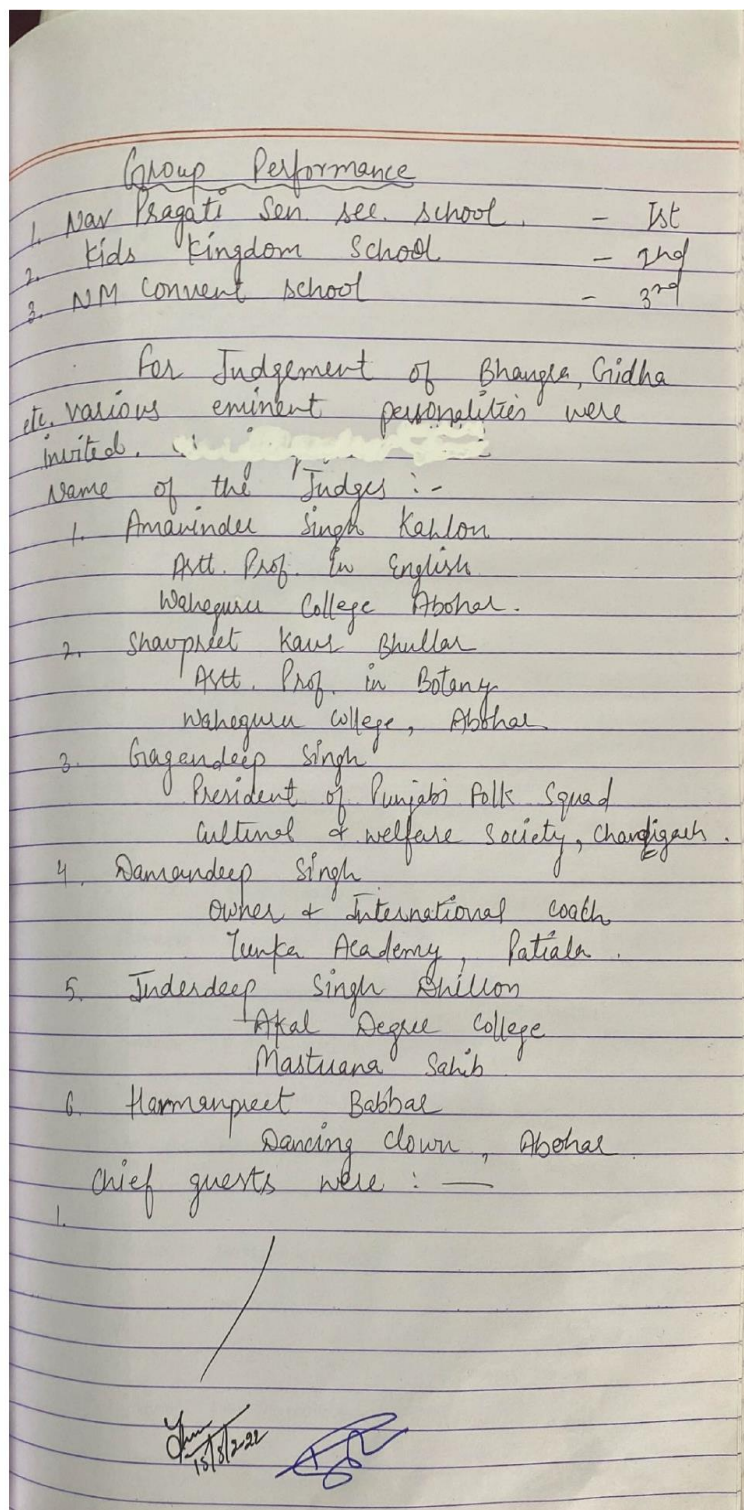 Group Performance
1. Nav Pragati Sen. sec. school. - Ist
2. Kids Kingdom School - 2nd
3. NM Convent school - 3rd
For Judgement of Bhangra, Gidha
etc. various eminent personalities were
invited.
Name of the Judges :-
1. Amavinder Singh Kahlon
Astt. Prof. in English
Waheguru College Abohar.
2. Shavpreet Kaur Bhullar
Astt. Prof. in Botany
Waheguru College, Abohar
3. Gagandeep Singh
President of Punjabi Folk Squad
Cultural & welfare Society, Chandigarh.
4. Damandeep Singh
Owner & International coach
Academy, Patiala.
5. Inderdeep Singh Dhillon
Akal Degree College
Mastuana Sahib
6. Harmanpreet Babbar
Dancing Clown, Abohar
Chief guests were : —
1.